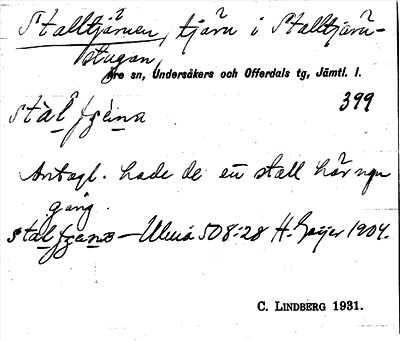 Stalltjärnen, tjärn i Stalltjärn-
stugan,
Åre sn, Undersåkers och Offerdals tg, Jämtl. l.
399
Antagl. hade de en stall här ngn
gång.
Ulma 508:28 H. Geijer 1904.
C. LINDBERG 1931.